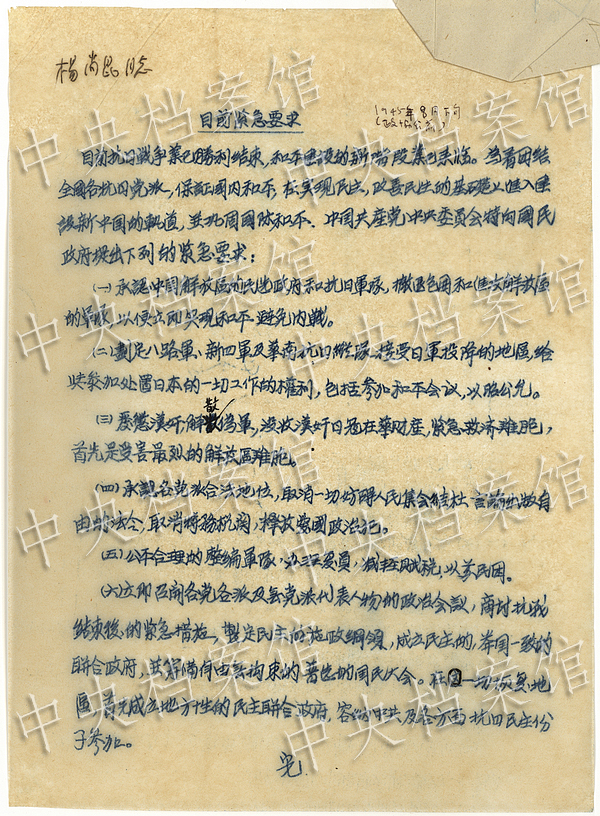 杨尚昆同志
1945年8月下旬
目前紧急要求
目前抗日战争業已勝利结束，和平建設的新階段業已来临。当着团结
全國各抗日党派，保証國内和平，在实现民主，改善民生的基礎上進入建
設新中国的軌道，並巩固國际和平，中国共産党中央委员会特向國民
政府提出下列的紧急要求：
(一) 承認中国解放區的民選政府和抗日軍隊，撤退包围和進攻解放區
的軍隊，以便立即实现和平，避免内戰。
(二) 劃定八路軍、新四軍及華南抗日縱隊接受日軍投降的地區，给
以参加处置日本的一切工作的權利，包括参加和平会议，以昭公允。
(三) 嚴懲漢奸，解散偽軍，没收漢奸日寇在華财産，紧急救济難胞，
首先是受害最烈的解放區難胞。
(四) 承認各党派合法地位，取消一切妨碍人民集会结社言論出版自
由的法令，取消特務机関，释放愛國政治犯。
(五) 公平合理的整编軍隊，办理复員，减轻赋税，以苏民困。
(六) 立即召開各党各派及無党派代表人物的政治会議，商討抗戰
结束後的紧急措施，製定民主的施政綱領，成立民主的，举国一致的
聯合政府，并籌備自由無拘束的普选的國民大会。在一切恢复地
區首先成立地方性的民主聯合政府，容納中共及各方面抗日民主份
子参加。
完
中央档案馆
中央档案馆
中央档案馆
中央档案馆
中央档案馆
中央档案馆